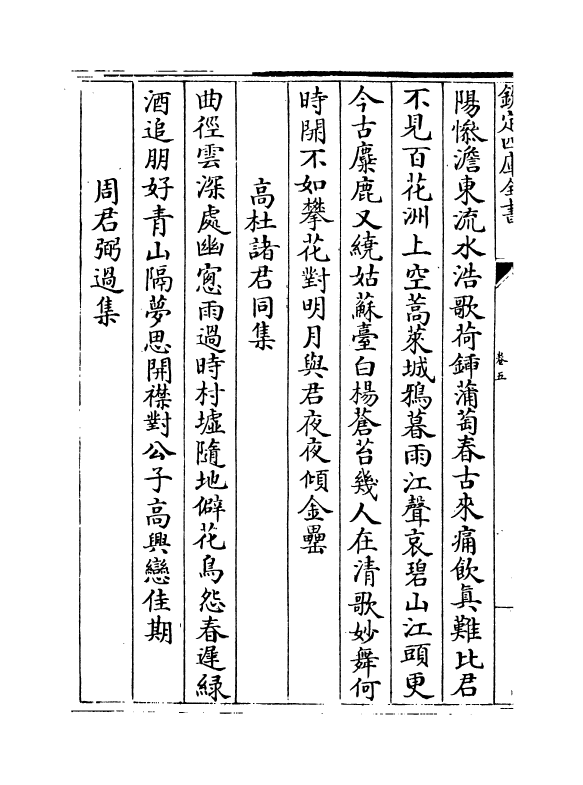 欽定四庫全書
卷五
陽慘澹東流水浩歌荷鍤蒲萄春古來痛飲真難比君
不見百花洲上空蒿萊城鴉暮雨江聲哀碧山江頭更
今古麋鹿又繞姑蘇臺白楊蒼苔幾人在清歌妙舞何
時閒不如攀花對明月與君夜夜傾金罍
高杜諸君同集
曲徑雲深處幽窻雨過時村墟隨地僻花鳥怨春遲緑
酒追朋好青山隔夢思開襟對公子高興戀佳期
周君弼過集